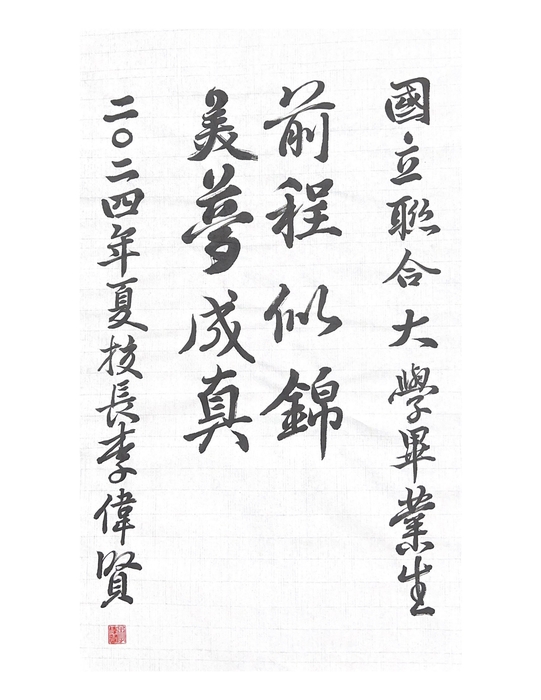 國立聯合大學畢業生
前程似錦
美夢成真
二〇二四年夏校長李偉賢